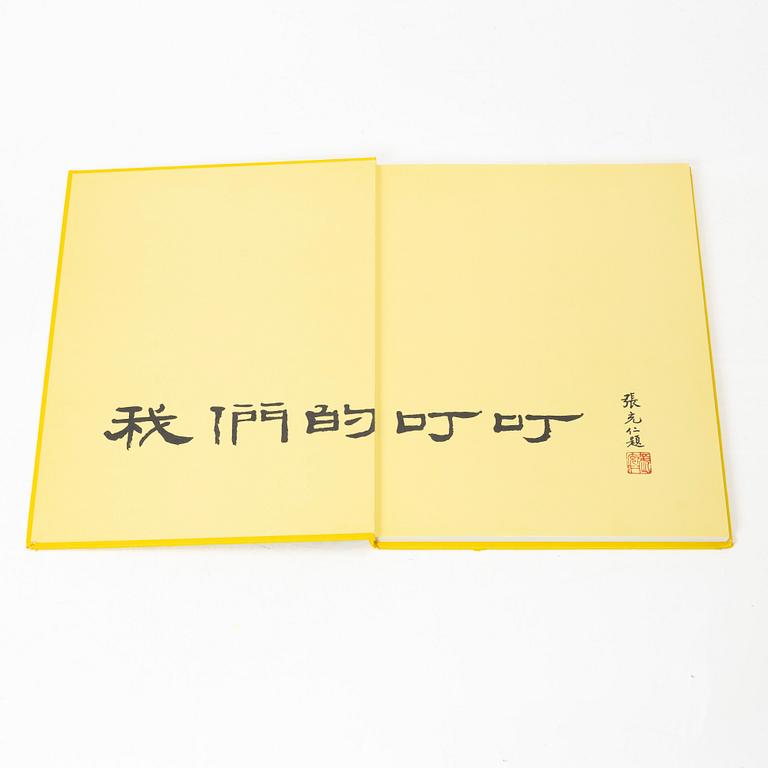 我們的叮叮
張充仁題